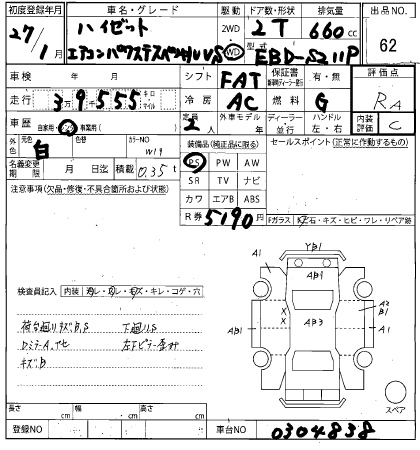 初度登録年月 車名・グレード 駆動 ドア数・形状 排気量 出品NO.
27/1月 ハイゼット 2WD 2T 660cc 62
エアコンパワステスペシャルVS WD 型式 EBD-S211P
車検 年 月 シフト FAT 保証書 有・無 評価点
走行 39555 万 千 キロ マイル 冷房 AC 燃料 G RA
車歴 自家用・レンタ・事業用( ) 定員 2人 外車モデル 年 ディーラー・並行 ハンドル 左・右 内装評価 C
外色 元色 白 色替 カラーNO W19 装備品(純正品に限る) セールスポイント(正常に作動するもの)
名義変更期限 月 日迄 積載 0.35t PS PW AW
注意事項(欠品・修復・不具合箇所および状態) SR TV ナビ
カワ エアB ABS
R券 5190円 Fガラス 石・キズ・ヒビ・ワレ・リペア跡
YB1
A1 AB1
検査員記入 内装 ヨゴレ・ワレ・キズ・キレ・コゲ・穴
A2 B1
荷台廻りキズB,S 下廻りS AB1 X X AB3 A1
DミラーA,
キズB
スペア
長さ cm 幅 cm 高さ cm
登録NO 車台NO 0304838